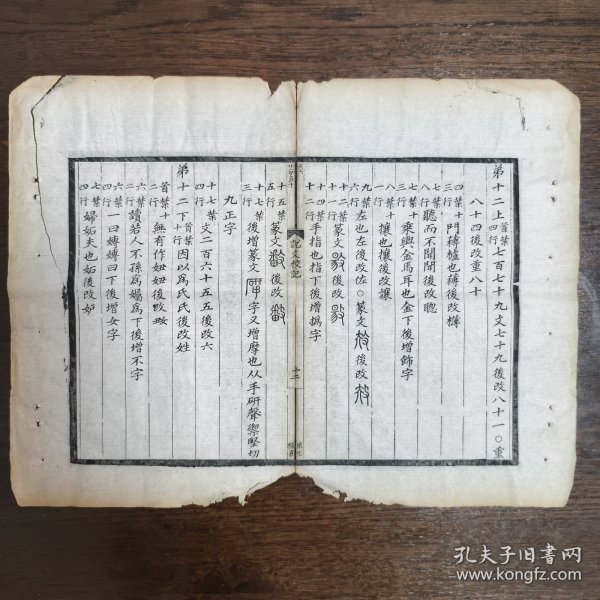 弟十二上首葉四行七百七十九文七十九後改八十一○重
八十四後改重八十
四葉十三行門欂櫨也欂後改樽
七葉八行聽而不聞聞後改聰
七葉十三行乘輿金馬耳也金下後增飾字
八葉十一行攘也攘後改讓
九葉六行左也左後改佐○篆文後改
十二葉十一行篆文後改
十四葉十二行手指也指下後增撝字
十五葉五行篆文後改
十七葉三行後增篆文字又增摩也从手研聲禦堅切
九正字
十七葉四行文二百六十五五後改六
弟十二下首葉十行因以為氏氏後改姓
首葉十二行無有作妞妞後改
六葉二行讀若人不孫為嬀為下後增不字
六葉四行一曰嫥嫥曰下後增女字
七葉四行婦妬夫也妬後改妒
說文校記
十二
孔夫子旧書网
www.kongfz.com